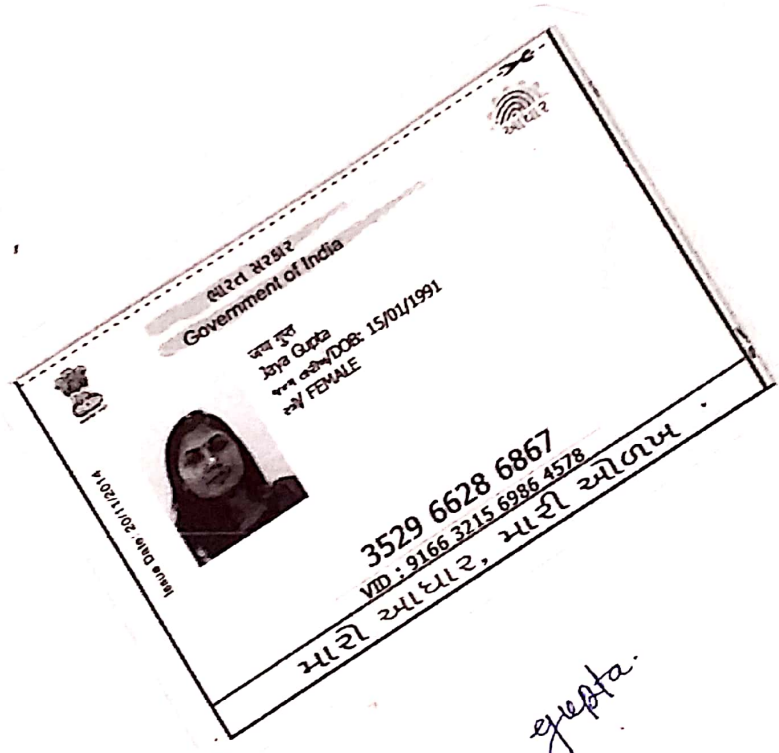 આધાર
ભારત સરકાર
Government of India
Jaya Gupta
DOB: 15/01/1991
FEMALE
Issue Date: 20/11/2014
3529 6628 6867
VID : 9166 3215 6986 4578
મારો આધાર, મારી ઓળખ
gupta.